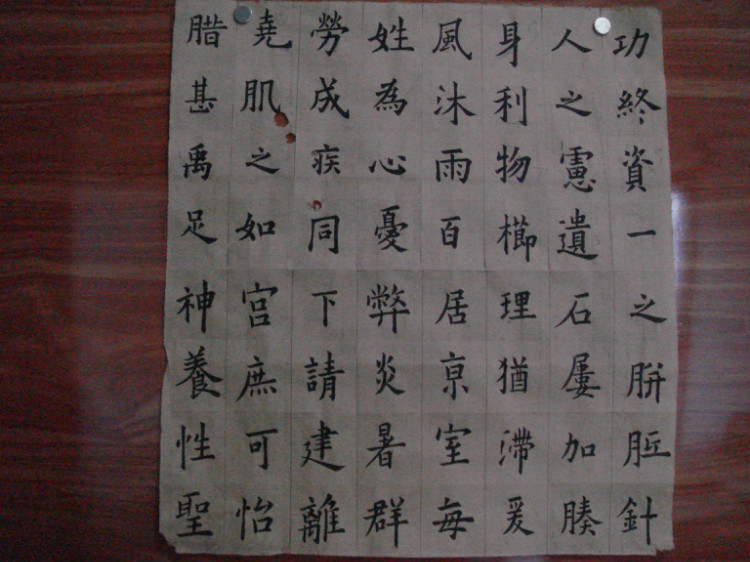 功終資一
人之慮遺
身利物櫛
風沐雨百
姓為心憂
勞成疾同
堯肌之如
腊甚禹足
之胼胝針
石屢加腠
理猶滯爰
居亰室每
弊炎暑群
下請建離
宮庶可怡
神養性聖